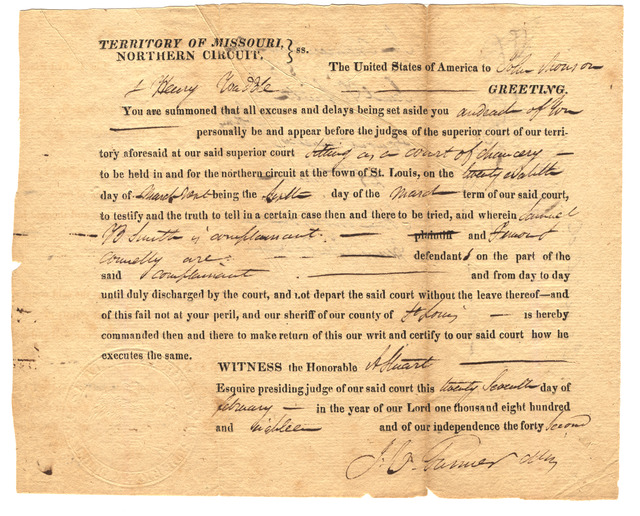 TERRITORY OF MISSOURI, } ss.
NORTHERN CIRCUIT.
The United States of America to John
& Henry GREETING,
You are summoned that all excuses and delays being set aside you and each of you
personally be and appear before the judges of the superior court of our terri-
tory aforesaid at our said superior court sitting as a court of chancery
to be held in and for the northern circuit at the town of St. Louis, on the
day of March next being the day of the March term of our said court,
to testify and the truth to tell in a certain case then and there to be tried, and wherein Samuel
B Smith is complainant plaintiff and
Connelly are defendants on the part of the
said complainant and from day to day
until duly discharged by the court, and not depart the said court without the leave thereof—and
of this fail not at your peril, and our sheriff of our county of St Louis is hereby
commanded then and there to make return of this our writ and certify to our said court how he
executes the same.
WITNESS the Honorable A Stuart
Esquire presiding judge of our said court this twenty Seventh day of
february in the year of our Lord one thousand eight hundred
and eighteen and of our independence the forty Second